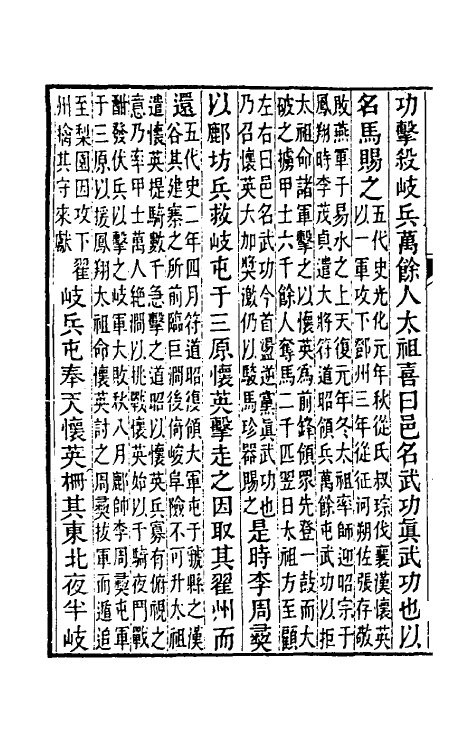 功擊殺岐兵萬餘人太祖喜曰邑名武功眞武功也以
名馬賜之
五代史光化元年秋從氏叔琮伐襄漢懷英
以一軍攻下鄧州三年從征河朔佐張存敬
敗燕軍于易水之上天復元年冬太祖率師迎昭宗于
鳳翔時李茂貞遣大將符道昭領兵萬餘屯武功以拒
太祖命諸軍擊之以懷英爲前鋒領眾先登一鼓而大
破之擄甲士六千餘人奪馬二千匹翌日太祖方至顧
左右曰邑名武功今首盪逆黨眞武功也
乃召懷英大加獎激仍以駿馬珍器賜之
是時李周彞
以鄜坊兵救岐屯于三原懷英擊走之因取其翟州而
還
五代史二年四月符道昭復領大軍屯于虢縣之漢
谷其建寨之所前臨巨澗後倚峻阜險不可升太祖
遣懷英提騎數千急擊之道昭以懷英兵寡有俯視之
意乃率甲士萬人絶澗以挑戰懷英始以千騎夜鬥戰
酣發伏兵以擊之岐軍大敗秋八月鄜師李周彞屯軍
于三原以援鳳翔太祖命懷英討之周彞拔軍而遁追
至梨園因攻下翟
州擒其守來獻
岐兵屯奉天懷英柵其東北夜半岐